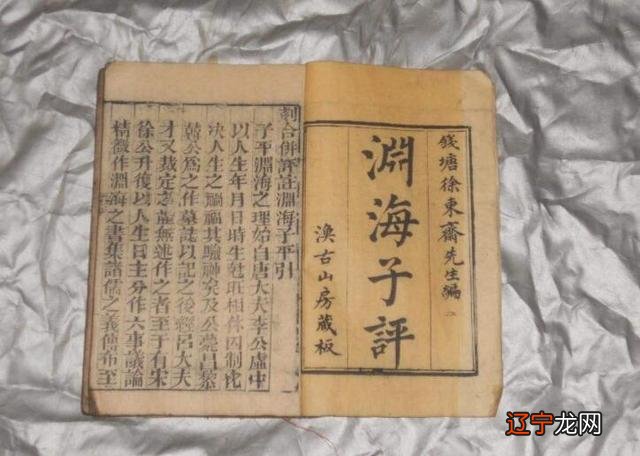 錢塘徐東齋先生編
淵海子評
漁古山房藏板
刻合併評註淵海子平引
子平淵海之理始自唐大夫李公虛中
以人生年月日時生尅旺相休囚制化
決人生之禍福其驗神矣及公薨昌黎
韓公為之作墓誌以記之後經呂大夫
才又裁定之並無述作之者至于有宋
徐公升復以人生日主分作六事議論
精微作淵海之書集諸儒之義傳布至
辽宁龙网